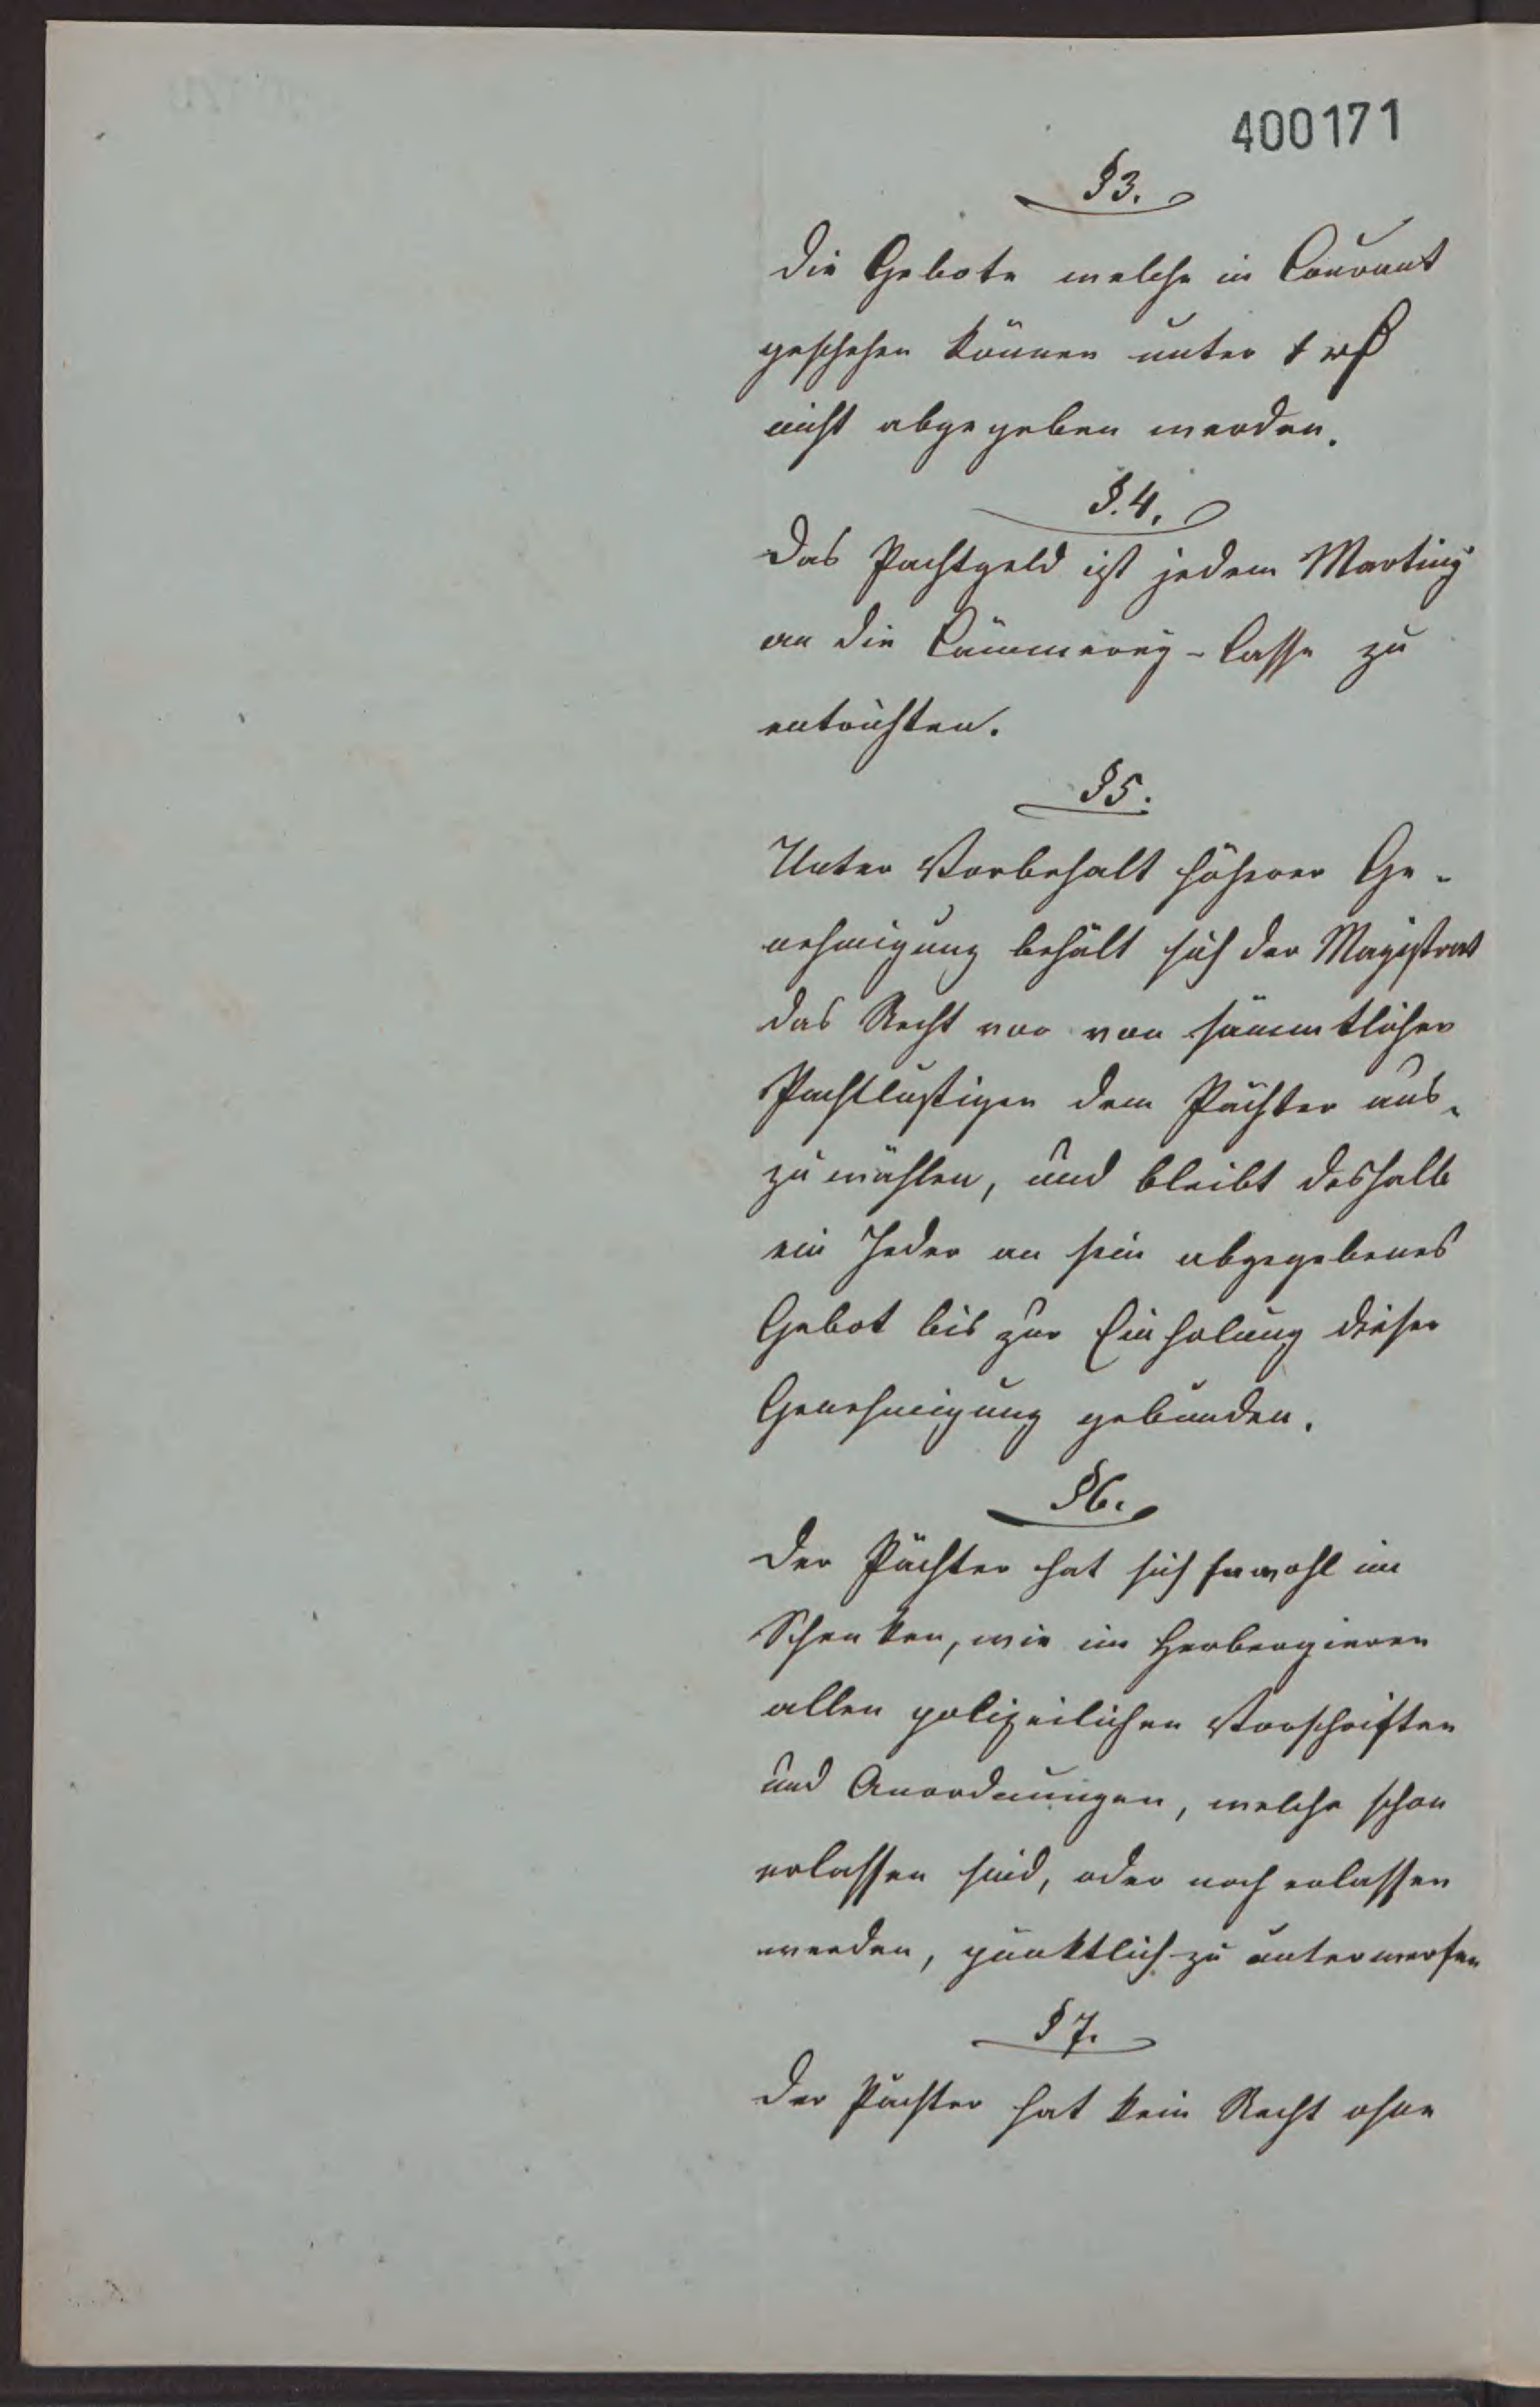 400171
§3.
Die Gebote welche in Courant
geschehen können unter 1 rß
nicht abgegeben werden.
§.4.
Das Pachtgeld ist jedem Martiny
an die Cämmerey-Casse zu
entrichten.
§5.
Unter Vorbehalt höherer Ge-
nehmigung behält sich der Magistrat
das Recht vor von sämmtlicher
Pachtlustigen dem Pächter aus-
zuwählen, und bleibt deshalb
ein Jeder an sein abgegebenes
Gebot bis zur Einholung dieser
Genehmigung gebunden.
§6.
Der Pächter hat sich sowohl im
Schenken, wie im Herbergieren
allen polizeilichen Vorschriften
und Anordnungen, welche schon
erlassen sind, oder noch erlassen
werden, pünktlich zu unterwerfen
§7.
Der Pächter hat kein Recht ohne